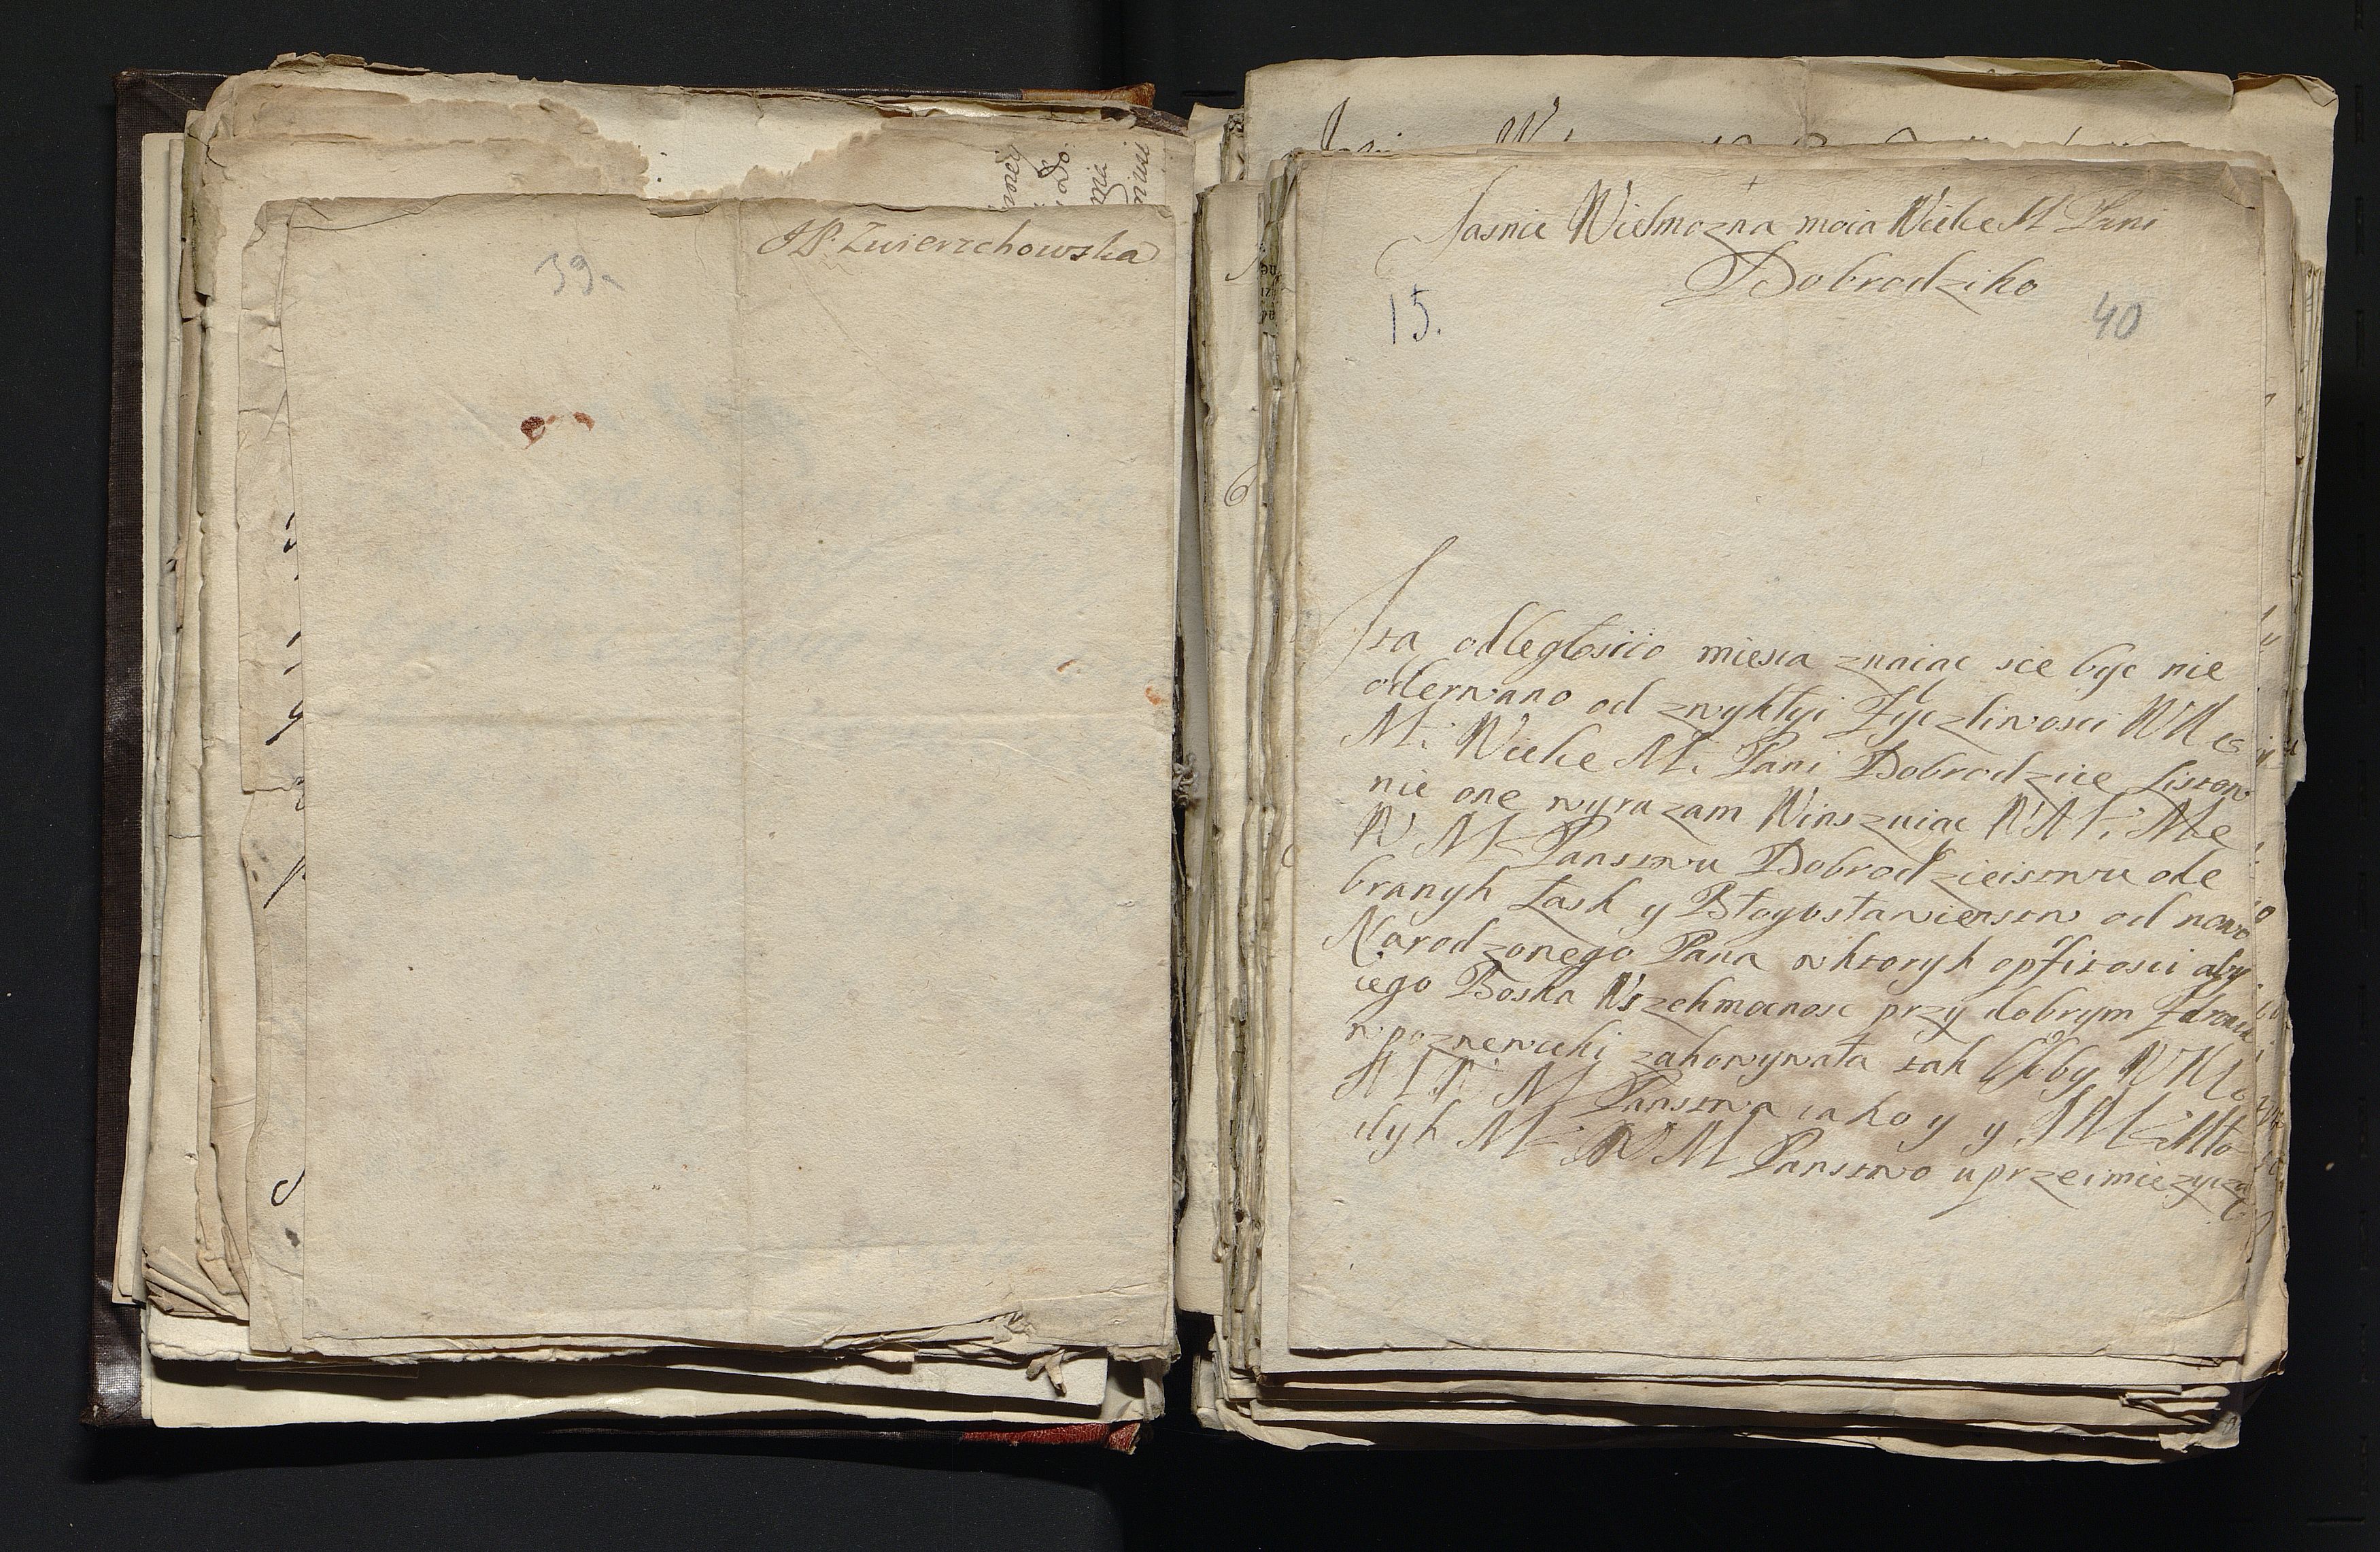 39
JP. Zwierzchowska
Jasnie Wielmozna moia Wielce M Pani
Dobrodziko
15.
40
odległoscio miesca znaiac sie byc nie
oderwano od zwykłyi Życzliwosci
M: Wielce M: Pani Dobrodzice Listow
nie one wyrazam Winszuiac W M: Me
W M Panstwu Dobrodzieistwu ode
branyh Łask y Błogosławienstw od nowo
Narodzonego Pana wktoryh opfitosci aby
iego Boska Wszehmocnosc przy dobrym Zdrowiu
wpoznewieki zahowywała tak
M Panstwa iako y y J M Mło
dyh M: W M Panstwo uprzeimie zycza